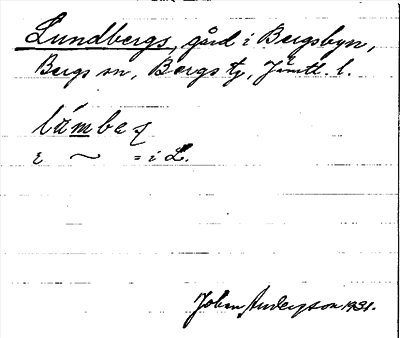 Lundbergs, gård i Bergsbyn,
Bergs sn, Bergs tg, Jämtl. l.
i ~ = i L.
Johan Anderson 1931.